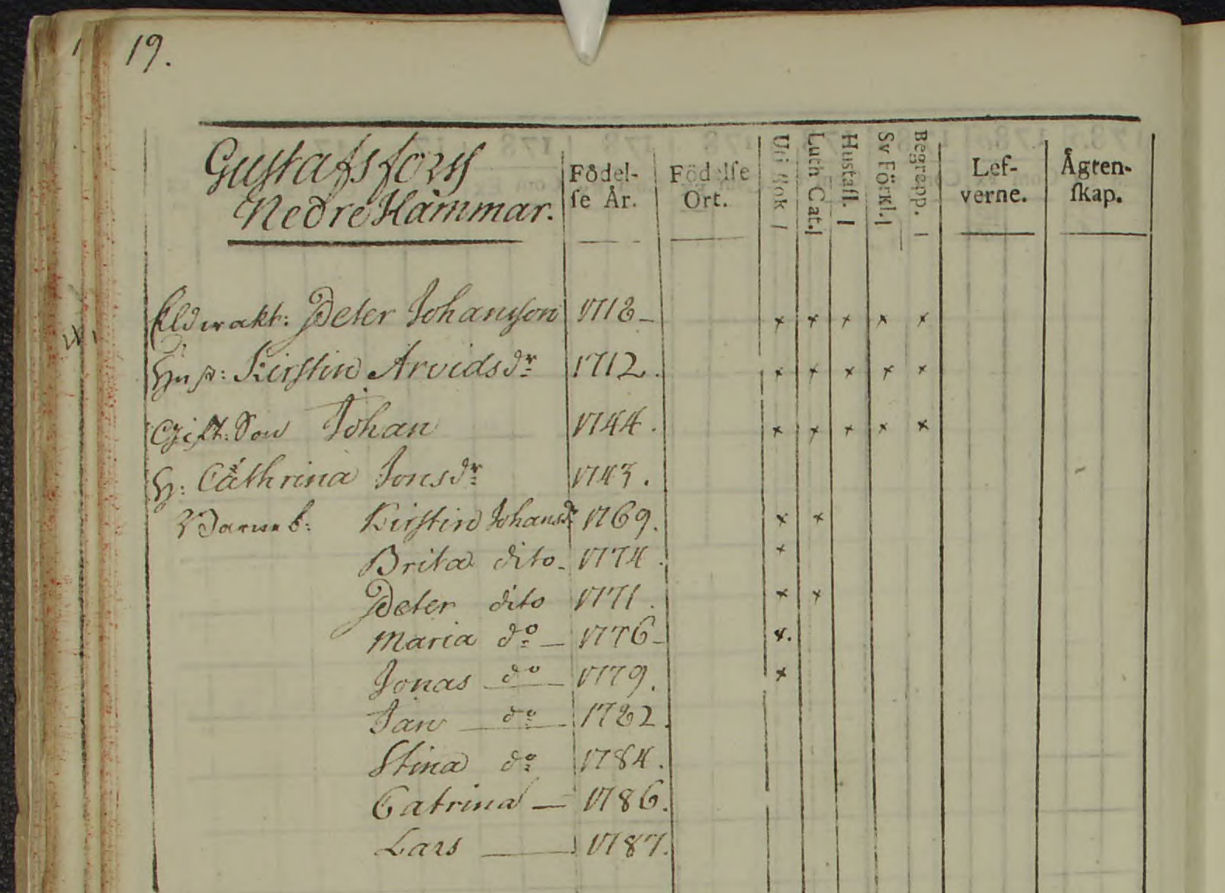 19.
Gustafsfors
Nedre Hammar.
Födel-
se År.
Födelse
Ort.
Uti Bok
Luth Cat.
Hustafl.
Sv Förkl.
Begrepp.
Lef-
verne.
Ägten-
skap.
Peter Johansson 1718
Hust: Kirstin Arvidsdr 1712.
Gift: Son Johan 1744.
H: Cathrina Jonsdr 1743.
Barneb: Kirstin Johansdr 1769.
Brita dito 1774.
Peter dito 1771.
Maria do 1776
Jonas do 1779.
Jan do 1782.
Stina do 1784.
Catrina 1786.
Lars 1787.